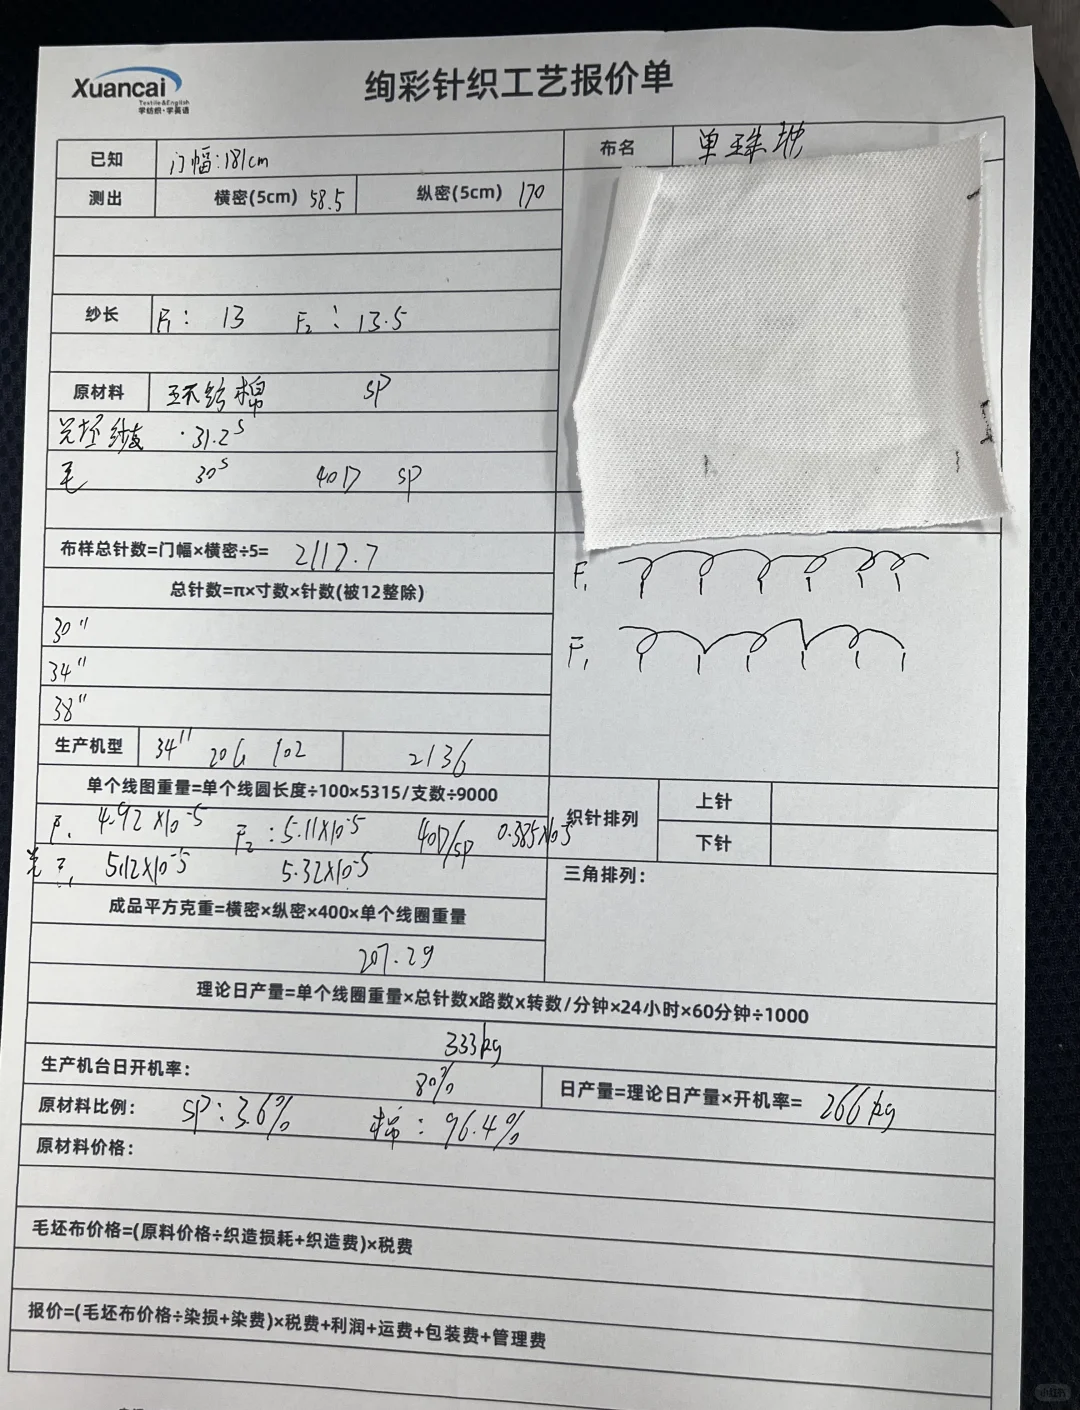 Xuancai
Textile&English
学纺织·学英语
绚彩针织工艺报价单
已知 门幅:181cm 布名 单珠地
测出 横密(5cm) 58.5 纵密(5cm) 170
纱长 F1: 13 F2: 13.5
原材料 环纺棉 SP
光坯纱支 31.2s
毛 30s 40D SP
布样总针数=门幅×横密÷5= 2117.7
F1
总针数=π×寸数×针数(被12整除)
30"
F1
34"
38"
生产机型 34" 20G 102 2136
单个线图重量=单个线圆长度÷100×5315/支数÷9000
织针排列 上针
下针
F1 4.92×10-5 F2:5.11×10-5 40D/SP 0.385×10-5
光 5.12×10-5 5.32×10-5
三角排列:
成品平方克重=横密×纵密×400×单个线圈重量
207.29
理论日产量=单个线圈重量×总针数×路数×转数/分钟×24小时×60分钟÷1000
333kg
生产机台日开机率: 80% 日产量=理论日产量×开机率= 266kg
原材料比例: SP:3.6% 棉:96.4%
原材料价格:
毛坯布价格=(原料价格÷织造损耗+织造费)×税费
报价=(毛坯布价格÷染损+染费)×税费+利润+运费+包装费+管理费
小红书